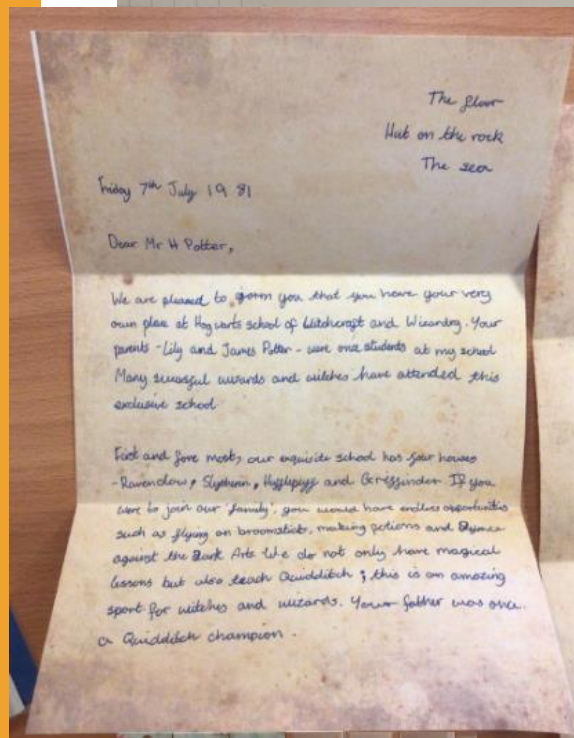 The floor
Hut on the rock
The sea
Friday 7th July 1981
Dear Mr H Potter,
We are pleased to inform you that you have your very
own place at Hogwarts school of Witchcraft and Wizardry. Your
parents - Lily and James Potter - were once students at my school
Many sucessful wizards and witches have attended this
exclusive school
First and fore most, our exquisite school has four houses
- Ravenclow, Slytherin, Hufflepuff and Griffindor If you
were to join our 'family', you would have endless opportunities
such as flying on broomsticks, making potions and
against the Dark Arts We do not only have magical
lessons but also teach Quidditch ; this is an amazing
sport for witches and wizards. Your father was once
a Quidditch champion.